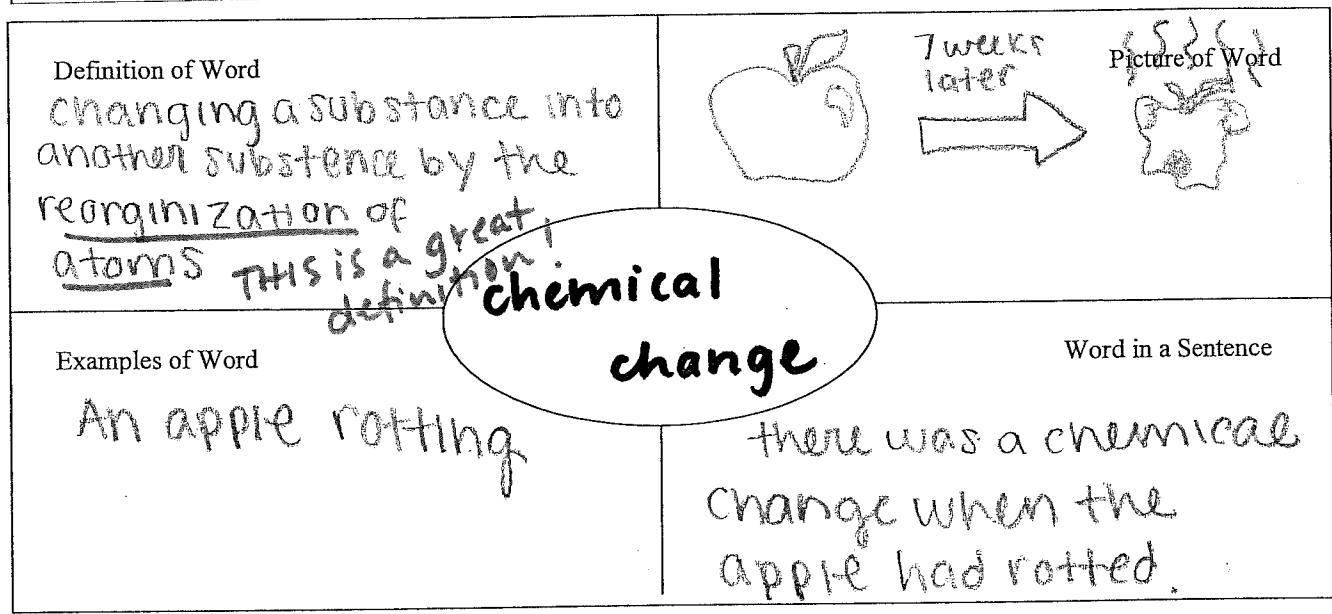 Definition of Word
changing a substance into
another substence by the
reorginization of
atoms
THIS is a great
definition!
7 weeks
later
Picture of Word
chemical
change
Examples of Word
An apple rotting
Word in a Sentence
there was a chemical
change when the
apple had rotted.